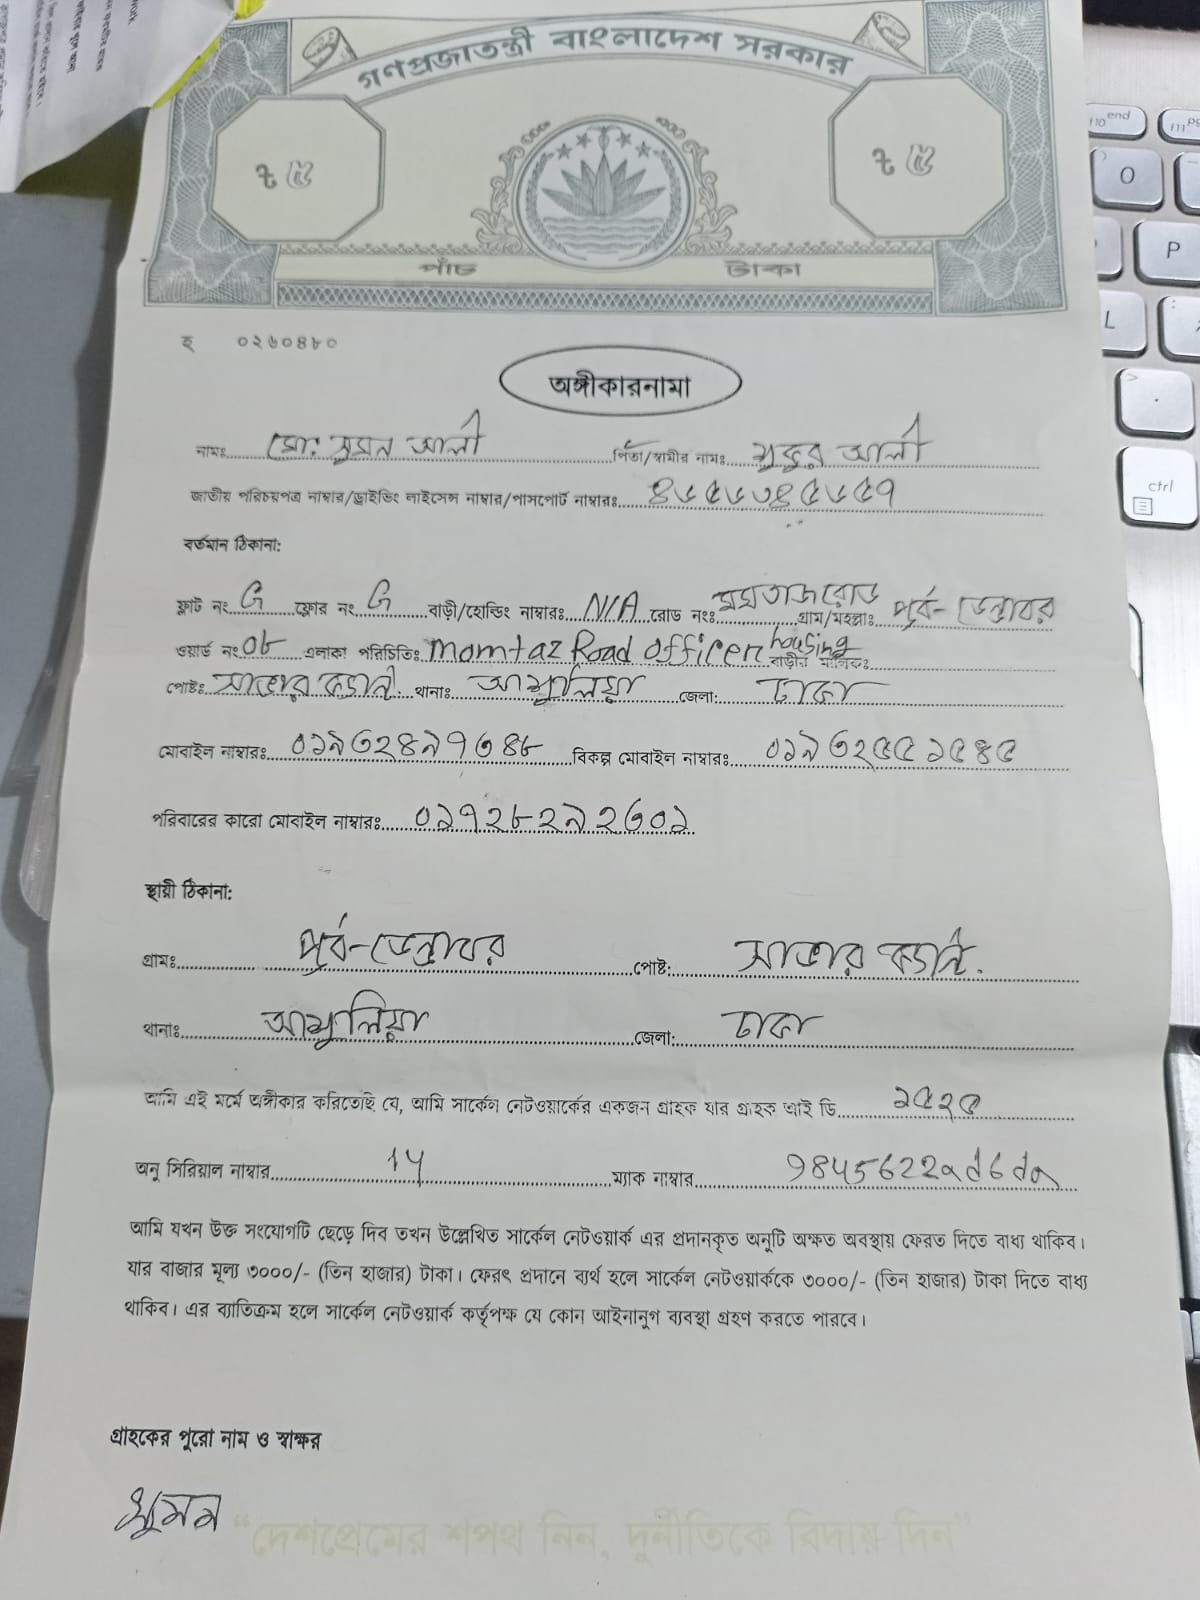 গণপ্রজাতন্ত্রী বাংলাদেশ সরকার
৳ ৫ ৳ ৫
পাঁচ টাকা
হ ০২৬০৪৮০
অঙ্গীকারনামা
নামঃ মোঃ সুমন আলী পিতা/স্বামীর নামঃ শুকুর আলী
জাতীয় পরিচয়পত্র নাম্বার/ড্রাইভিং লাইসেন্স নাম্বার/পাসপোর্ট নাম্বারঃ
বর্তমান ঠিকানা:
ফ্লাট নং G ফ্লোর নং G বাড়ী/হোল্ডিং নাম্বারঃ N/A রোড নংঃ মমতাজ রোড গ্রাম/মহল্লাঃ পূর্ব-ডেন্ডাবর
ওয়ার্ড নং ০৮ এলাকা পরিচিতিঃ Momtaz Road officer housing বাড়ীর মালিকঃ
পোষ্টঃ সাভার ক্যান্ট. থানাঃ আশুলিয়া জেলা: ঢাকা
মোবাইল নাম্বারঃ ০১৯৩২৪৯৭৩৪৮ বিকল্প মোবাইল নাম্বারঃ ০১৯৩২৫৫১৫৪৫
পরিবারের কারো মোবাইল নাম্বারঃ ০১৭২৮২৯২৩০১
স্থায়ী ঠিকানা:
গ্রামঃ পূর্ব-ডেন্ডাবর পোষ্ট: সাভার ক্যান্ট.
থানাঃ আশুলিয়া জেলা: ঢাকা
আমি এই মর্মে অঙ্গীকার করিতেছি যে, আমি সার্কেল নেটওয়ার্কের একজন গ্রাহক যার গ্রাহক আই ডি ১৫২৫
অনু সিরিয়াল নাম্বার 14 ম্যাক নাম্বার
আমি যখন উক্ত সংযোগটি ছেড়ে দিব তখন উল্লেখিত সার্কেল নেটওয়ার্ক এর প্রদানকৃত অনুটি অক্ষত অবস্থায় ফেরত দিতে বাধ্য থাকিব।
যার বাজার মূল্য ৩০০০/- (তিন হাজার) টাকা। ফেরৎ প্রদানে ব্যর্থ হলে সার্কেল নেটওয়ার্ককে ৩০০০/- (তিন হাজার) টাকা দিতে বাধ্য
থাকিব। এর ব্যাতিক্রম হলে সার্কেল নেটওয়ার্ক কর্তৃপক্ষ যে কোন আইনানুগ ব্যবস্থা গ্রহণ করতে পারবে।
গ্রাহকের পুরো নাম ও স্বাক্ষর
সুমন
“দেশপ্রেমের শপথ নিন, দুর্নীতিকে বিদায় দিন”